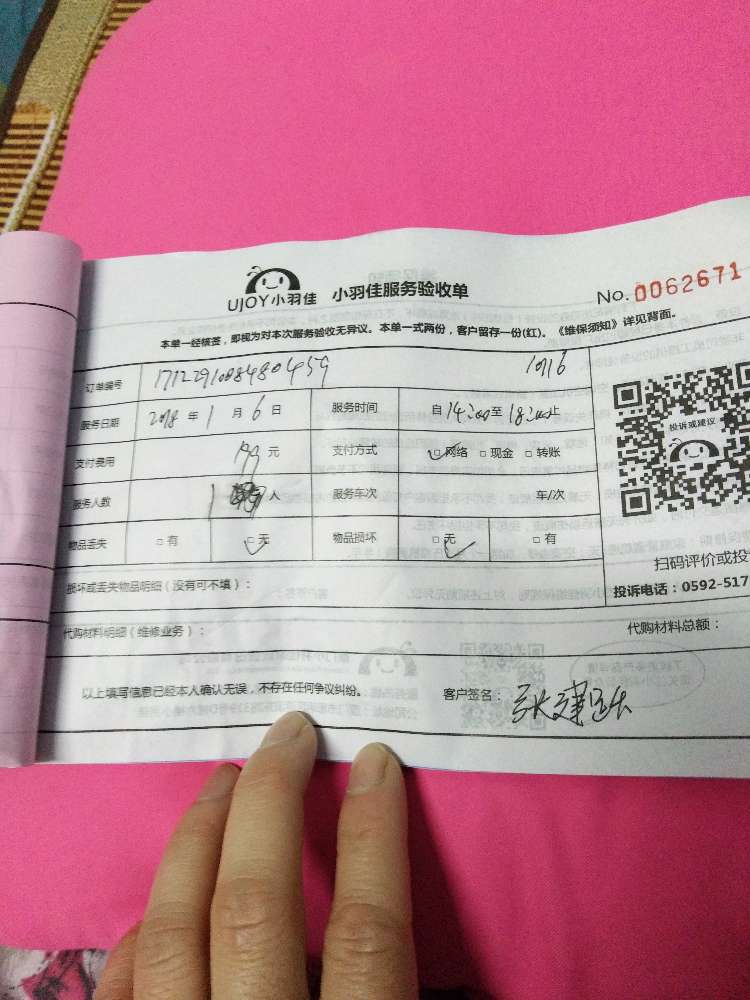 UJOY小羽佳 小羽佳服务验收单 No. 0062671
本单一经核签，即视为对本次服务验收无异议。本单一式两份，客户留存一份(红)。《维保须知》详见背面。
订单编号 1016
服务日期 2018 年 1 月 6 日 服务时间 自 14:00 至 18:00 止
支付费用 元 支付方式 □网络 □现金 □转账
服务人数 1 人 服务车次 车/次
物品丢失 □有 □无 物品损坏 □无 □有
投诉或建议
扫码评价或投
投诉电话：0592-517
损坏或丢失物品明细（没有可不填）：
代购材料明细（维修业务）： 代购材料总额：
以上填写信息已经本人确认无误，不存在任何争议纠纷。 客户签名：